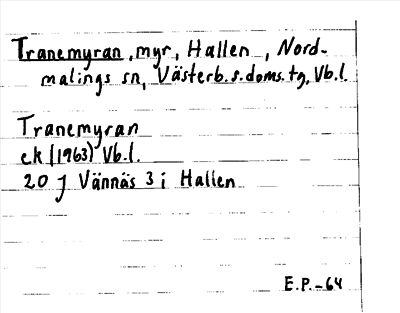 Tranemyran, myr, Hallen, Nord-
malings sn, Västerb. s. doms. tg, Vb.l.
Tranemyran
ek (1963) Vb.l.
20 J Vännäs 3 i Hallen
E.P.-64